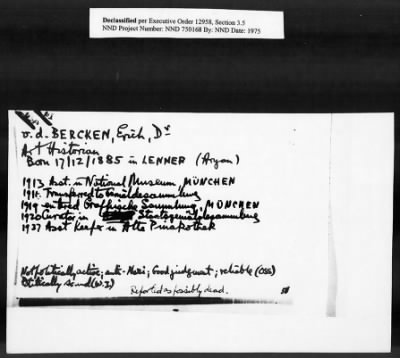 Declassified per Executive Order 12958, Section 3.5
NND Project Number: NND 750168 By: NND Date: 1975
v. d. BERCKEN, Erich, Dr
Art Historian
Born 17/12/1885 in LENNEP (Aryan)
1913 Asst. in National Museum, MÜNCHEN
Transferred to Gemäldesammlung
1919 entered Graphische Sammlung, MÜNCHEN
1920 Curator in Staatsgemäldesammlung
1937 Asst Keeper in Alte Pinakothek
Not politically active; anti-Nazi; Good judgment; reliable (OSS)
Politically sound (W.I.)
Reported as possibly dead.